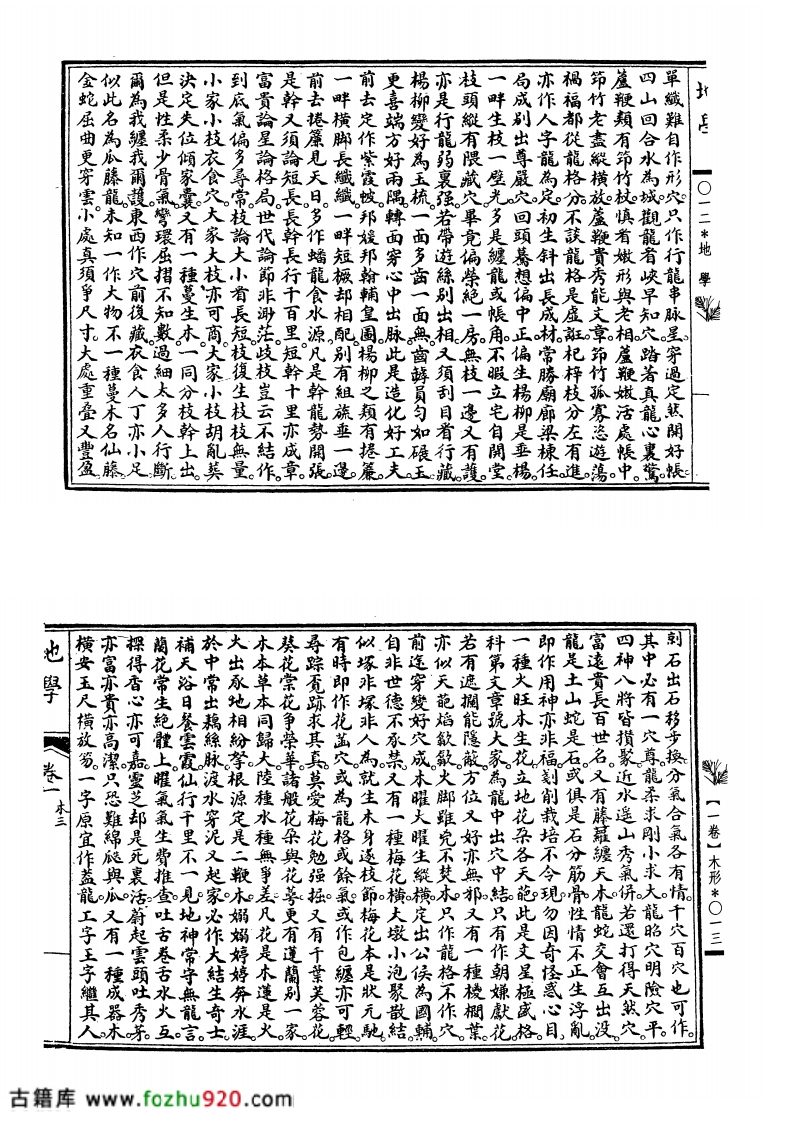 地學
〇一二＊地學
單纖難自作形穴。只作行龍串脉星。穿過定然開好帳。
四山回合水為城。觀龍看峽早知穴。踏著真龍心裏驚。
蘆鞭類有笻竹杖。慎看嫩形與老相。蘆鞭嫩活處帳中。
笻竹老盡縱橫放。蘆鞭貴秀能文章。笻竹孤寡恣遊蕩。
禍福都從龍格分。不談龍格是虛誑。杞梓枝分左右進。
亦作人字龍為定。初生斜出長成材。常勝廟廊梁棟任。
局成別出尊嚴穴。回頭驀想偏中正。偏生楊柳是垂楊。
一畔生枝一壁光。多是纏龍或帳角。不暇立宅自開堂。
枝頭縱有隈藏穴。畢竟偏榮絕一房。無枝一邊又有護。
亦是行龍弱裏强。若帶遊絲別出相。又須刮目看行藏。
楊柳變好為玉梳。一面多齒一面無。齒勻如碾玉
更喜端方好兩隅。轉面穿心中出脉。此是造化好工夫。
前去定作紫霞帔。邦媛邦翰輔皇圖。楊柳之類有捲簾。
一畔橫脚長纖纖。一畔短橛却相配。別有組族垂一邊。
前去捲簾見天日。多作蟠龍食水源。凡是幹龍勢開張。
是幹又須論短長。長幹長行千百里。短幹十里亦成章。
富貴論星論格局。世代論節非渺茫。歧枝豈云不結作。
到底氣偏多尋常。枝論大小看長短。枝復生枝枝無量。
小家小枝衣食穴。大家大枝亦可商。大家小枝胡亂葬。
決定失位傾家囊。又有一種蔓生木。一同分枝幹上出。
但是性柔少骨氣。彎環屈摺不知數。過細太多人行斷。
爾為我纏我爾護。東西作穴前後藏。衣食人丁亦小足。
似此名為瓜藤龍。未知一作大物不。一種蔓木名仙藤。
金蛇屈曲更穿雲。小處真須爭尺寸。大處重疊又豐盈。
【一卷】木形＊〇一三
剝石出石移步換。分氣合氣各有情。千穴百穴也可作。
其中必有一穴尊。龍柔求剛小求大。龍昭穴明險穴平。
四神八將皆損象。近水遥山秀氣併。若還打得天然穴。
富遠貴長百世名。又有藤蘿纏天木。龍蛇交會互出没。
龍是土山蛇是石。或俱是石分筋骨。性情不正生浮亂。
即作用神亦非福。剗削栽培不令現。勿因奇怪惑心目。
一種火旺木生花。立地花朵各天葩。此是文星極盛格。
科第文章號大家。為龍中出穴中結。只有作朝嫌獻花。
若有遮攔能隱蔽。方位又好亦無邪。又有一種稜欄葉。
亦似天葩焰歙歙。火脚雖兇不焚木。只作龍格不作穴。
前途穿變好穴成。木曜火曜生縱橫。定出公侯為國輔。
自非世德不承禁。又有一種梅花橫。大墩小泡聚散結。
似塚非塚非人為。就生木身逐枝節。梅花本是狀元馳。
有時即作花菡穴。或為龍格或餘氣。或作包纏亦可輕。
尋踪覓跡求其真。莫愛梅花勉强掘。又有千葉芙蓉花。
葵花棠花爭榮華。諸般花朵與花萼。更有蓮蘭別一家。
木本草本同歸大。陸種水種無爭差。凡花是木蓮是火。
火出承地相紛拏。根源定是二鞭木。嫋嫋婷婷奔水涯。
於中常出藕絲脉。渡水穿泥又起家。必作大結生奇士。
補天浴日餐雲霞。仙行千里不一見。地神常守無龍言。
蘭花常生絕體上。曜氣氣生費推查。吐舌卷舌水火互。
擇得香心亦可嘉。靈芝却是死裏活。蔚起雲頭吐秀芽。
亦富亦貴亦高潔。只恐難綿瓞與瓜。又有一種成器木。
橫安玉尺橫放笏。一字原宜作蓋龍。工字王字繼其人。
地學
卷一
木三
古籍库 www.fozhu920.com